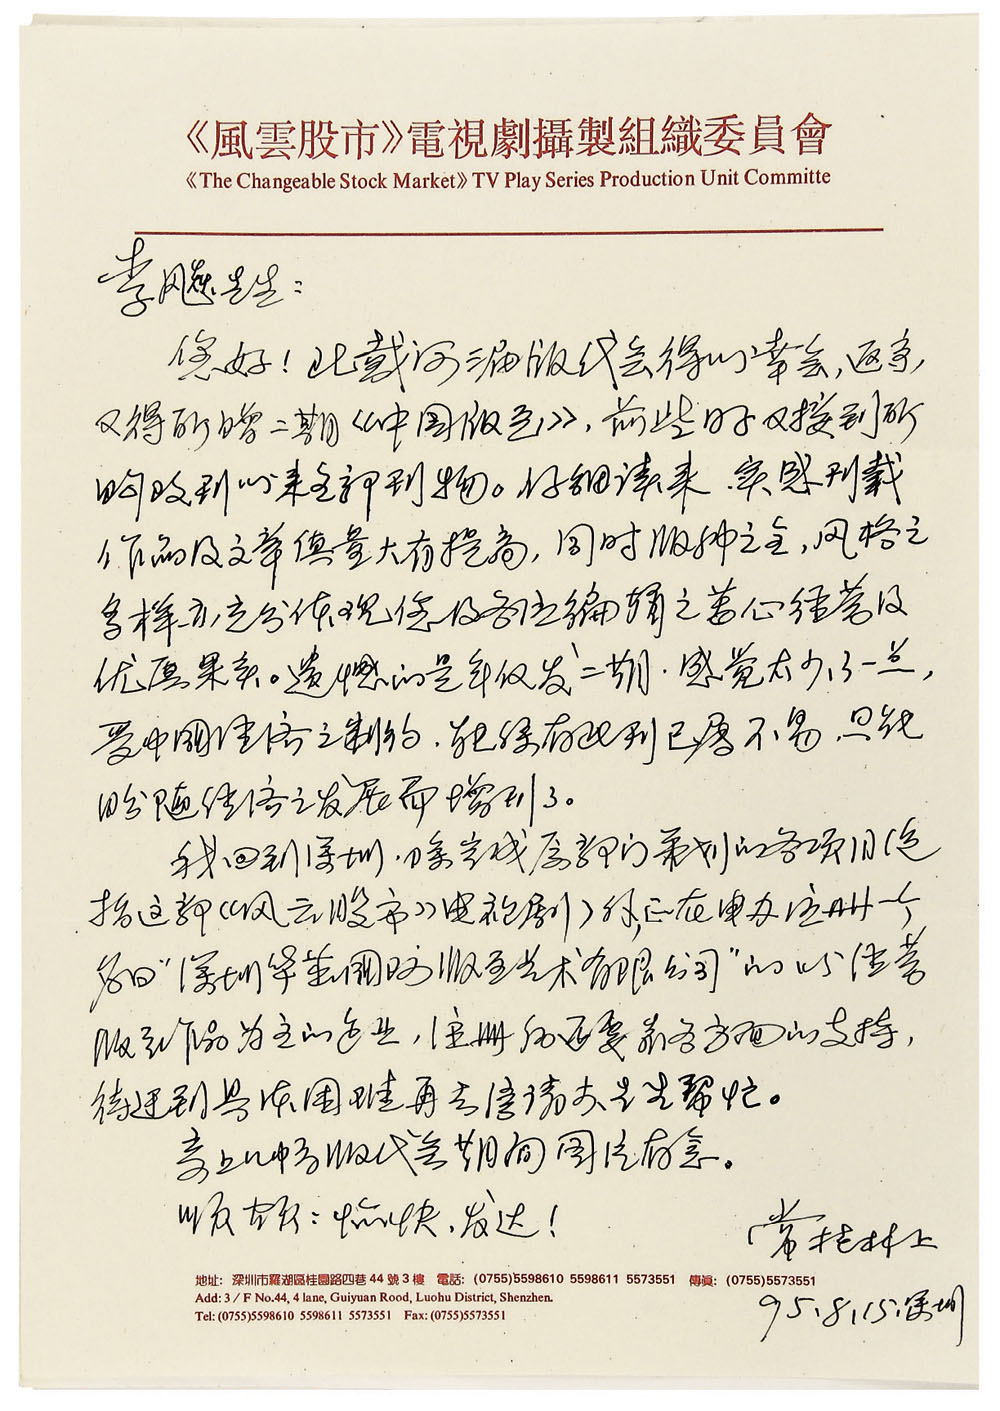 《風雲股市》電視劇攝製組織委員會
《The Changeable Stock Market》TV Play Series Production Unit Committe
李飚先生：
您好！北戴河三届版代会得以幸会，返京，
又得所赠二期《中国版画》，前些日子又接到所
盼收到以来全部刊物。仔细读来，实感刊载
作品及文章质量大有提高，同时版种之全，风格之
多样亦充分体现您及各位编辑之苦心经营及
优厚果实。遗憾的是年仅发二期，感觉太少了一点，
受中国经济之制约，能保存此刊已属不易，只能
盼随经济之发展而增刊了。
我回到深圳，除完成原部门策划的各项目（包
括这部《风云股市》电视剧）外，正在申办注册一个
名曰“深圳华 國际版画艺术有限公司”的以经营
版画作品为主的企业，注册后还要靠各方面的支持，
待遇到具体困难再去信请求先生帮忙。
寄上 版代会期间图片存念。
顺颂：愉快、发达！
常桂林上
95.8.15.深圳
地址: 深圳市羅湖區桂園路四巷 44 號 3 樓 電話: (0755)5598610 5598611 5573551 傳眞: (0755)5573551
Add: 3 / F No.44, 4 lane, Guiyuan Rood, Luohu District, Shenzhen.
Tel: (0755)5598610 5598611 5573551 Fax: (0755)5573551